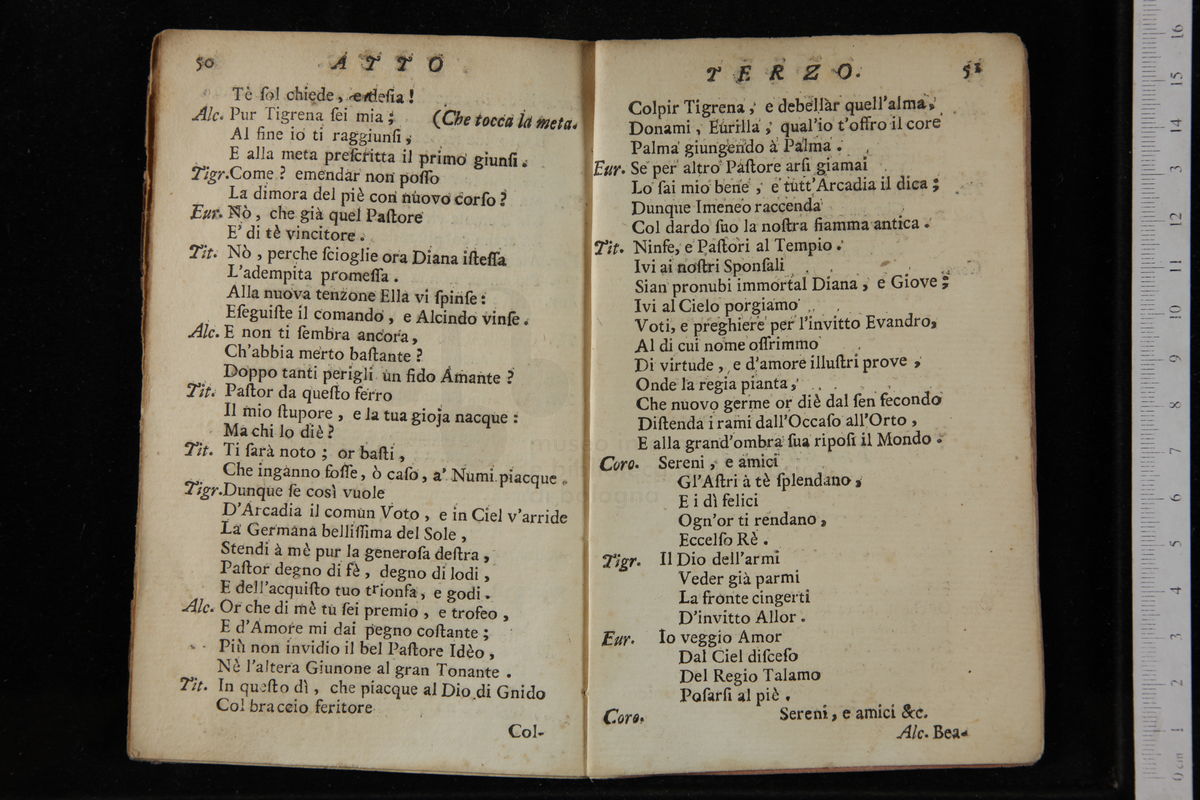 50 ATTO
Tè ſol chiede, e deſia!
Alc. Pur Tigrena ſei mia; (Che tocca la meta.
Al fine io ti raggiunſi,
E alla meta preſcritta il primo giunſi.
Tigr. Come? emendar non poſſo
La dimora del piè con nuovo corſo?
Eur. Nò, che già quel Paſtore
E' di tè vincitore.
Tit. Nò, perche ſcioglie ora Diana iſteſſa
L'adempita promeſſa.
Alla nuova tenzone Ella vi ſpinſe:
Eſeguiſte il comando, e Alcindo vinſe.
Alc. E non ti ſembra ancora,
Ch'abbia merto baſtante?
Doppo tanti perigli un fido Amante?
Tit. Paſtor da queſto ferro
Il mio ſtupore, e la tua gioja nacque:
Ma chi lo diè?
Tit. Ti ſarà noto; or baſti,
Che inganno foſſe, ò caſo, a' Numi piacque.
Tigr. Dunque ſe così vuole
D'Arcadia il comun Voto, e in Ciel v'arride
La Germana belliſſima del Sole,
Stendi à mè pur la generoſa deſtra,
Paſtor degno di fè, degno di lodi,
E dell'acquiſto tuo trionfa, e godi.
Alc. Or che di mè tu ſei premio, e trofeo,
E d'Amore mi dai pegno coſtante;
Più non invidio il bel Paſtore Idèo,
Nè l'altera Giunone al gran Tonante.
Tit. In queſto dì, che piacque al Dio di Gnido
Col braccio feritore
Col-
TERZO. 51
Colpir Tigrena, e debellar quell'alma,
Donami, Eurilla, qual'io t'offro il core
Palma giungendo à Palma.
Eur. Se per altro Paſtore arſi giamai
Lo ſai mio bene, e tutt'Arcadia il dica;
Dunque Imeneo raccenda
Col dardo ſuo la noſtra fiamma antica.
Tit. Ninfe, e Paſtori al Tempio.
Ivi ai noſtri Sponſali
Sian pronubi immortal Diana, e Giove;
Ivi al Cielo porgiamo
Voti, e preghiere per l'invitto Evandro,
Al di cui nome offrimmo
Di virtude, e d'amore illuſtri prove,
Onde la regia pianta,
Che nuovo germe or diè dal ſen fecondo
Diſtenda i rami dall'Occaſo all'Orto,
E alla grand'ombra ſua ripoſi il Mondo.
Coro. Sereni, e amici
Gl'Aſtri à tè ſplendano,
E i dì felici
Ogn'or ti rendano,
Eccelſo Rè.
Tigr. Il Dio dell'armi
Veder già parmi
La fronte cingerti
D'invitto Allor.
Eur. Io veggio Amor
Dal Ciel diſceſo
Del Regio Talamo
Poſarſi al piè.
Coro. Sereni, e amici &c.
Alc. Bea-